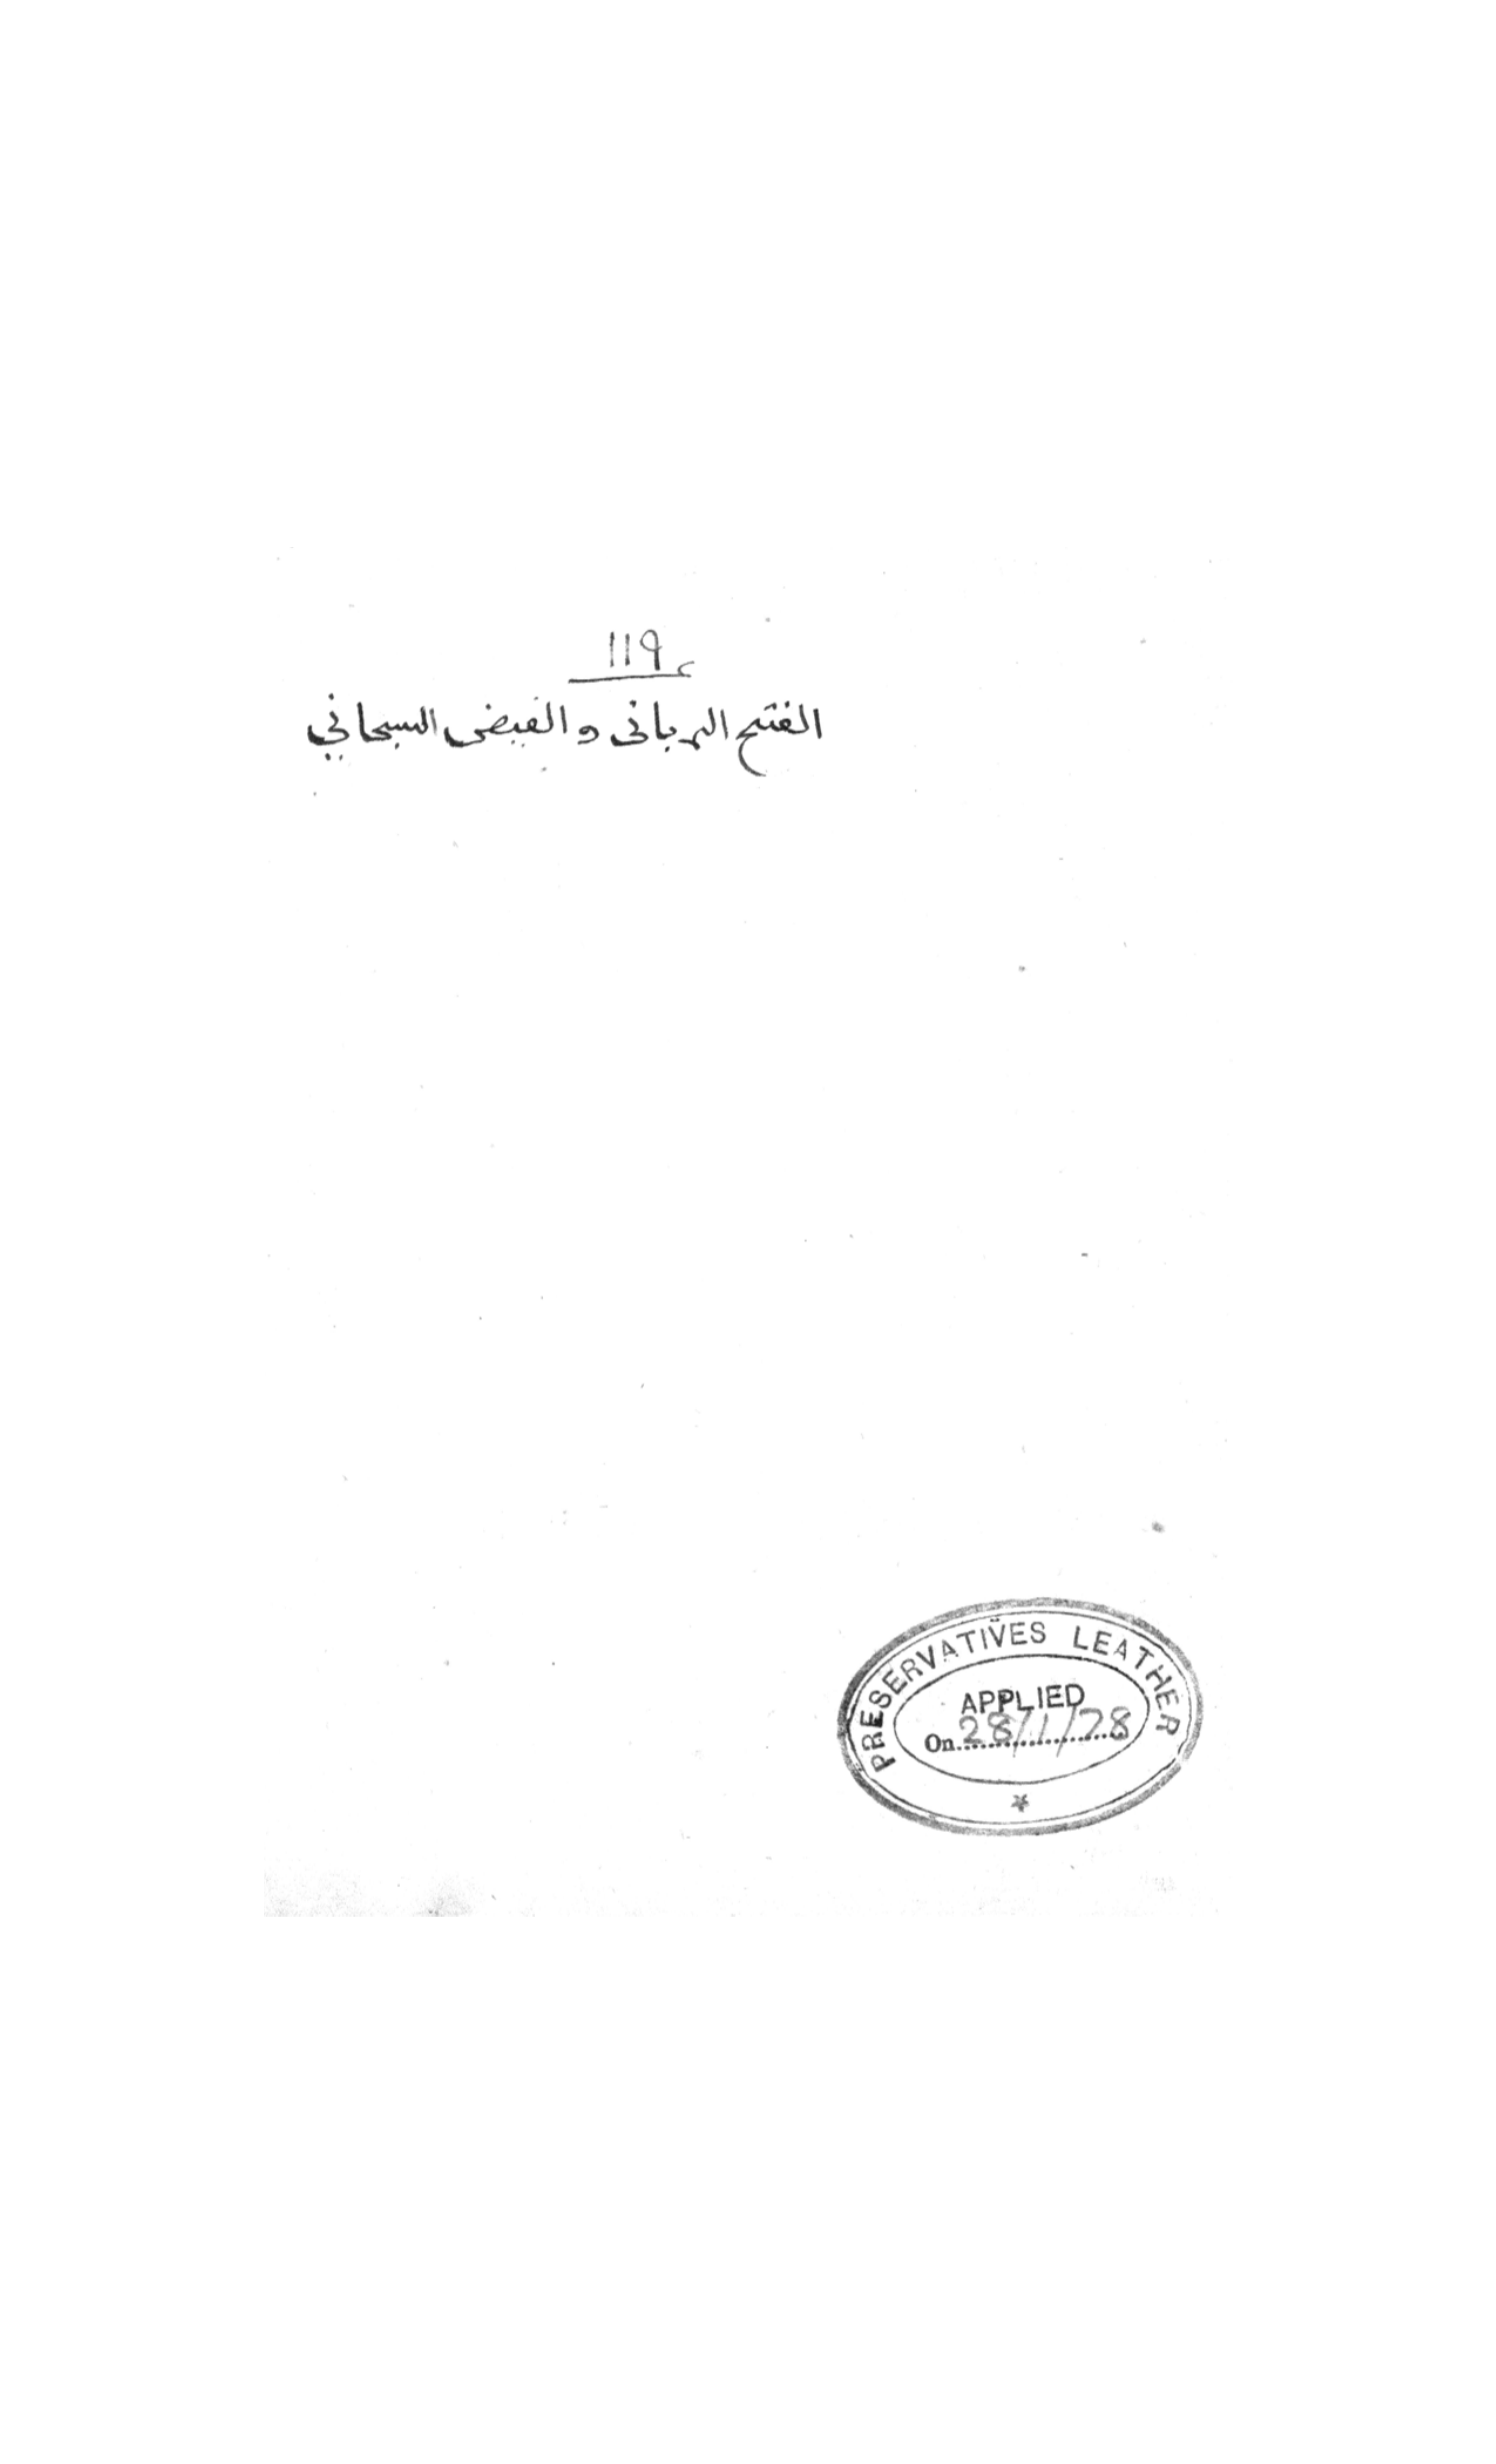 ١١٩
الفتح الربانى و الفيض السبحاني
PRESERVATIVES LEATHER
APPLIED
On 28/1/28